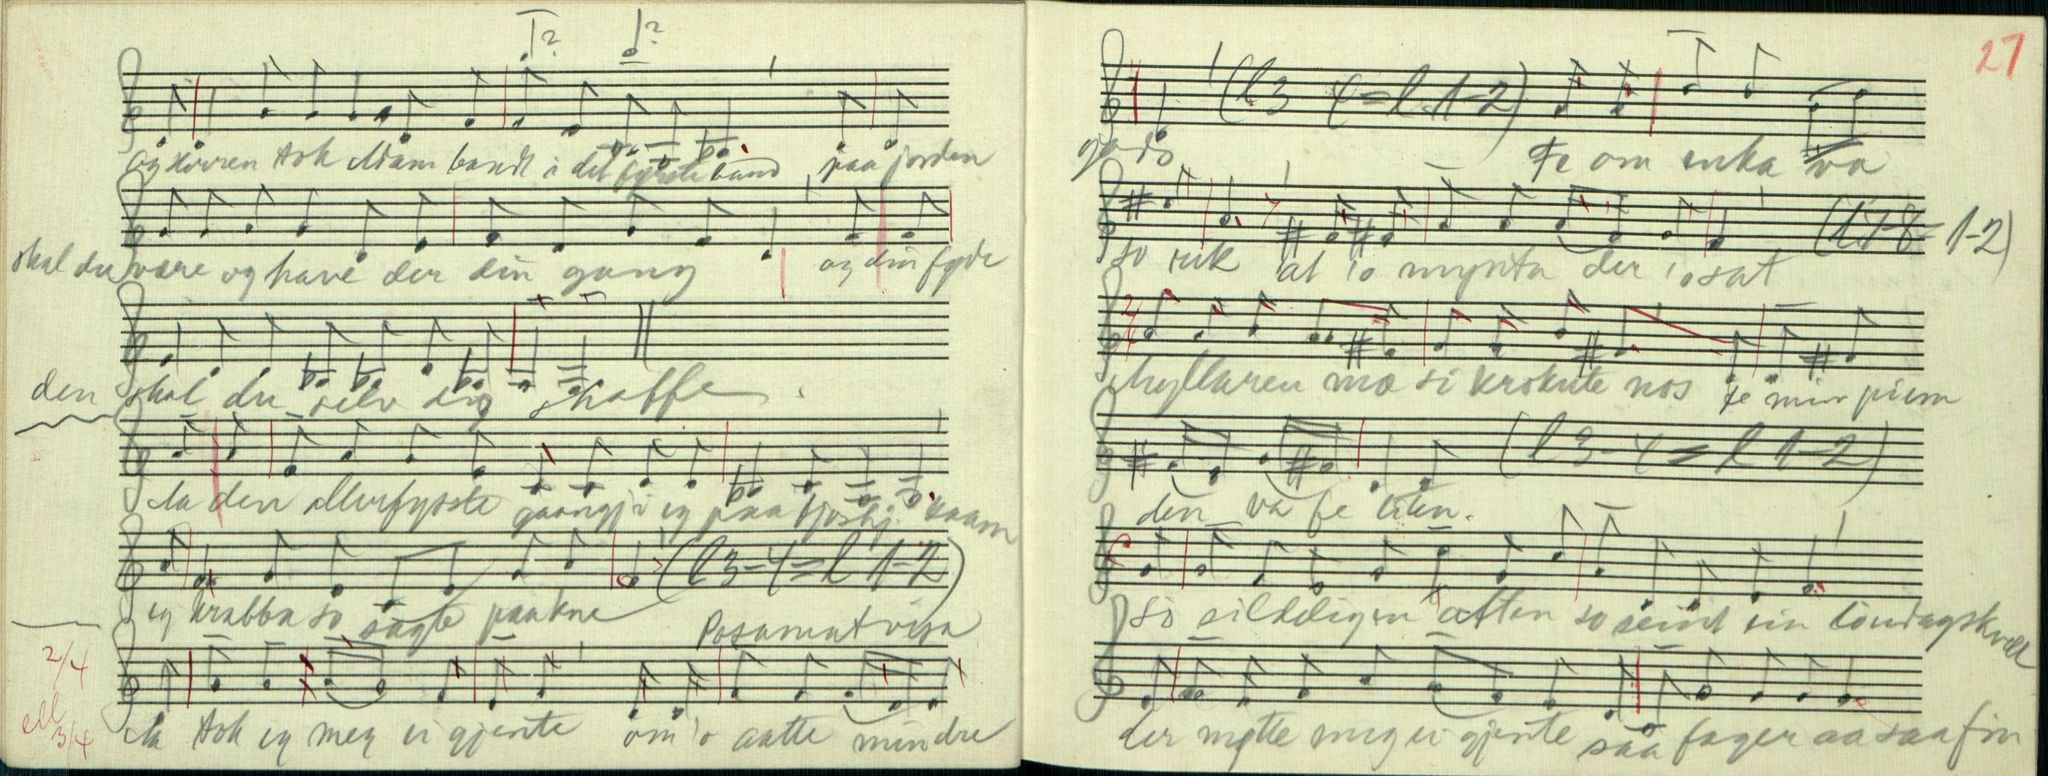 ? ?
og Herren tok Adam bandt i det fyrste baand paa jorden
skal du være og have der din gang og din fyde
den skal du selv dig skaffe.
Aa den allerfysste gaangji eg paa fjøshj. kaam
eg krabba so sagte paa kne (l 3-4 = l 1-2)
Posamentvisa
2/4
ell
3/4
Aa tok eg meg ei gjente om'o aatte mindre
27
(l 3 4 = l. 1-2)
gods Fe om enka va
so rik at io mynta der io sat (l 7-8 = 1-2)
2/4
hyllaren mæ si krokute nos Fe min piem
den va fe liten. (l 3-4 = l 1-2)
So sildeligen aften so seint ein laurdagskveld
der møtte meg ei gjente saa fager aa saa fin